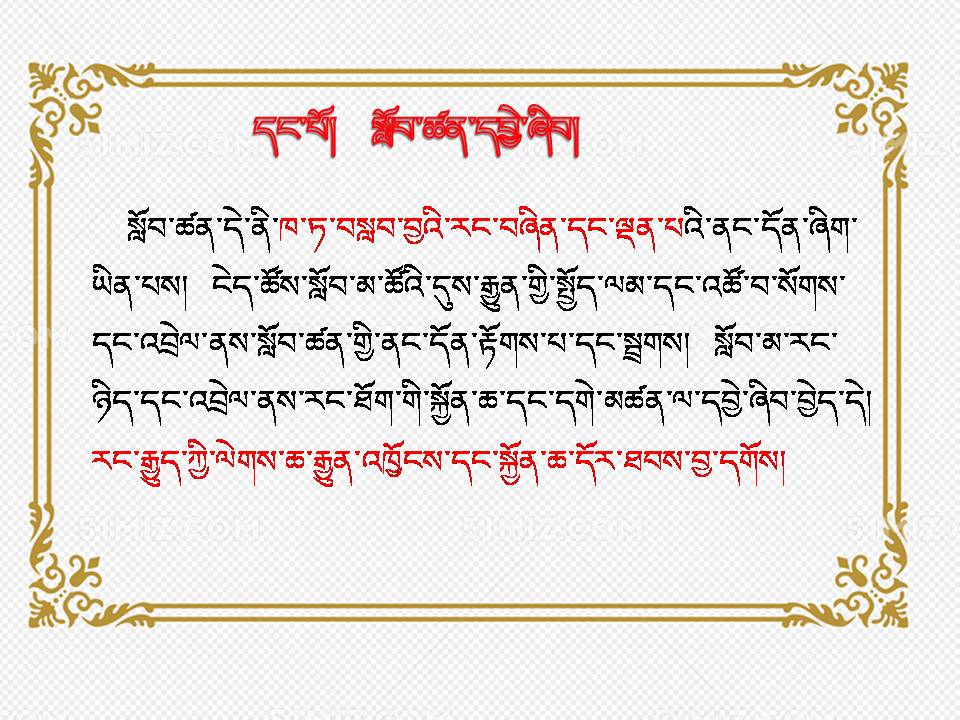 དང་པོ།  སློབ་ཚན་དབྱེ་ཞིབ།
སློབ་ཚན་དེ་ནི་ཁ་ཏ་བསླབ་བྱའི་རང་བཞིན་དང་ལྡན་པའི་ནང་དོན་ཞིག་
ཡིན་པས།  ངེད་ཚོས་སློབ་མ་ཚོའི་དུས་རྒྱུན་གྱི་སྤྱོད་ལམ་དང་འཚོ་བ་སོགས་
དང་འབྲེལ་ནས་སློབ་ཚན་གྱི་ནང་དོན་རྟོགས་པ་དང་སྦྲགས།  སློབ་མ་རང་
ཉིད་དང་འབྲེལ་ནས་རང་ཐོག་གི་སྐྱོན་ཆ་དང་དགེ་མཚན་ལ་དབྱེ་ཞིབ་བྱེད་དེ།
རང་རྒྱུད་ཀྱི་ལེགས་ཆ་རྒྱུན་འཁྱོངས་དང་སྐྱོན་ཆ་དོར་ཐབས་བྱ་དགོས།
51MIZ.COM